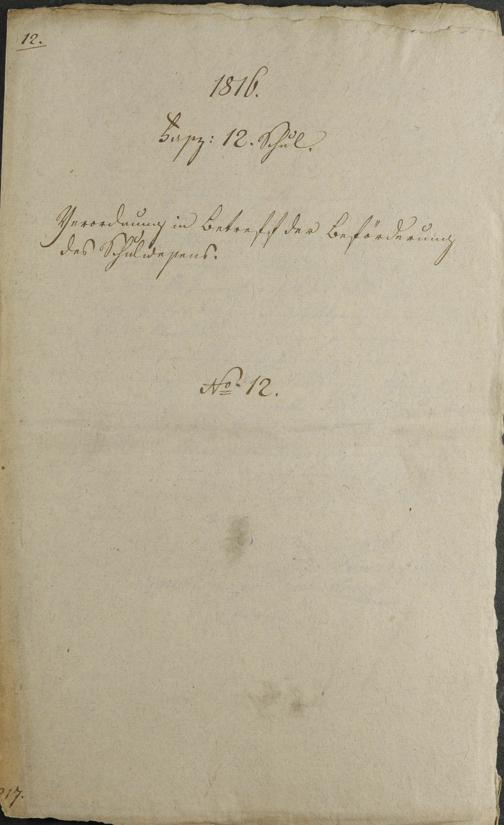 12.
1816.
Fasz: 12. Schul.
Verordnung in Betreff der Beförderung
des Schulwesens.
No. 12.
217.